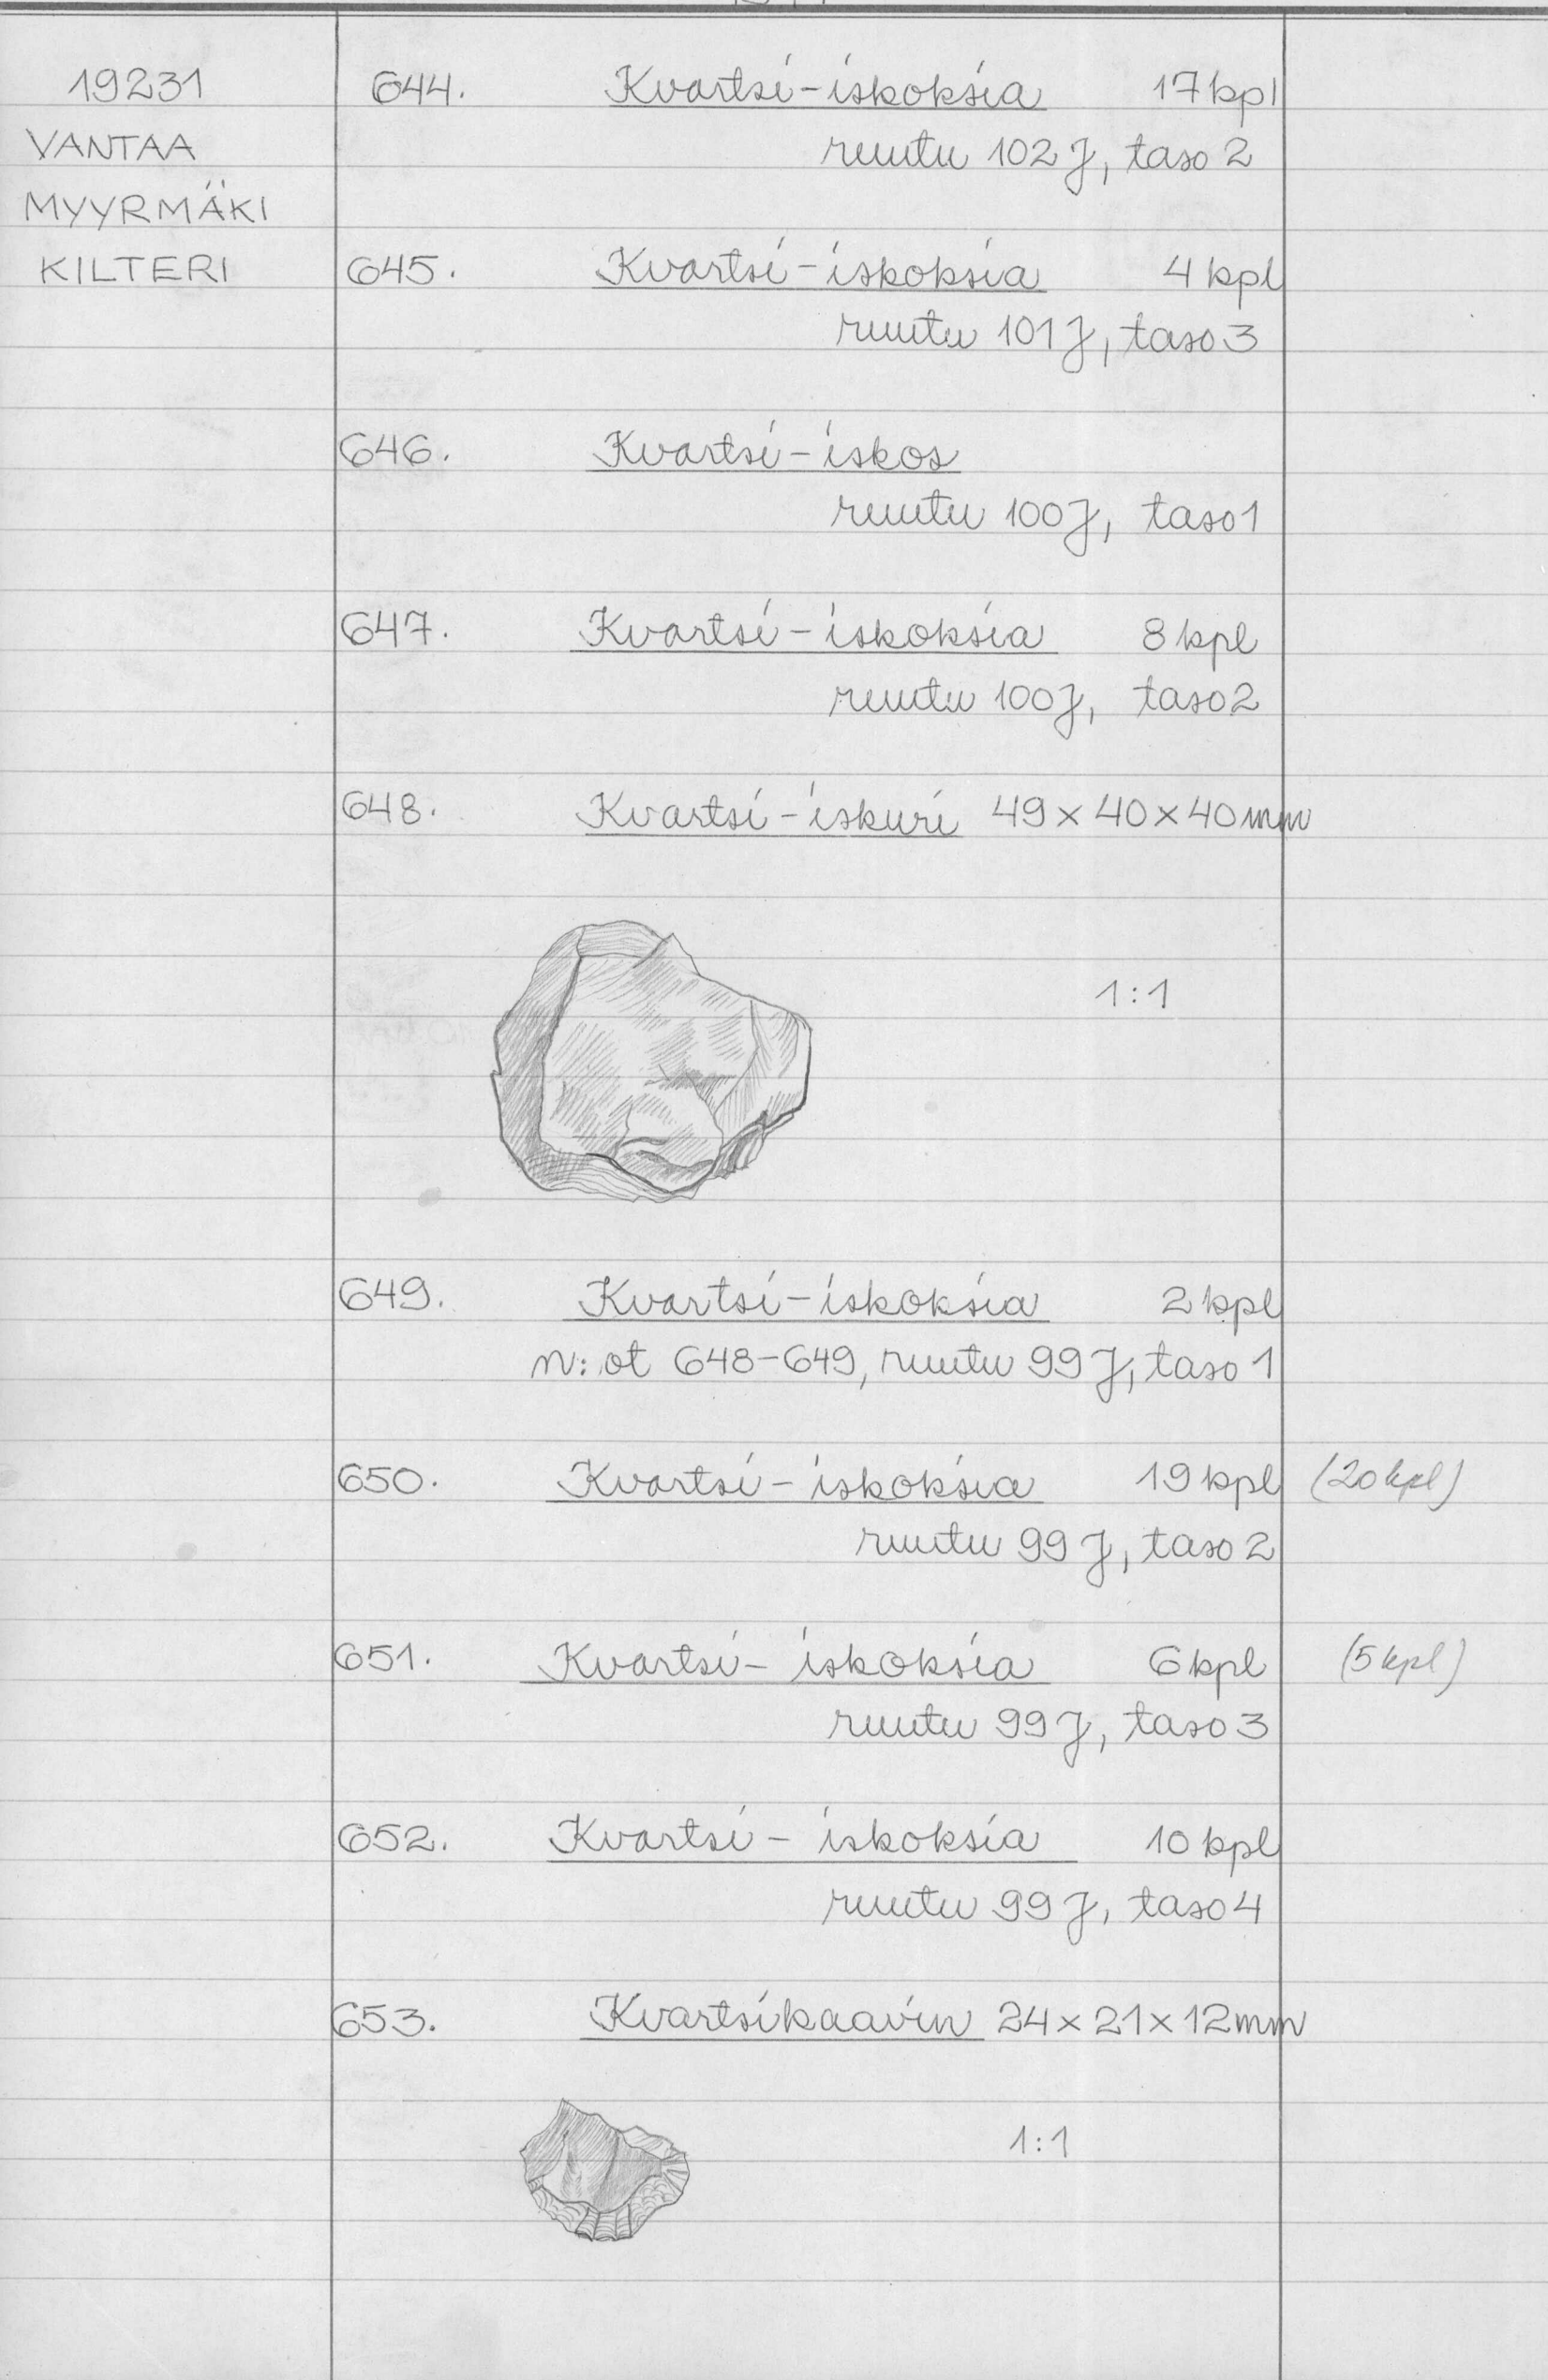 19231
VANTAA
MYYRMÄKI
KILTERI
644. Kvartsi-iskoksia 17 kpl
ruutu 102 J, taso 2
645. Kvartsi-iskoksia 4 kpl
ruutu 101 J, taso 3
646. Kvartsi-iskos
ruutu 100 J, taso 1
647. Kvartsi-iskoksia 8 kpl
ruutu 100 J, taso 2
648. Kvartsi-iskuri 49 x 40 x 40 mm
1:1
649. Kvartsi-iskoksia 2 kpl
n:ot 648-649, ruutu 99 J, taso 1
650. Kvartsi-iskoksia 19 kpl (20 kpl)
ruutu 99 J, taso 2
651. Kvartsi-iskoksia 6 kpl (5 kpl)
ruutu 99 J, taso 3
652. Kvartsi-iskoksia 10 kpl
ruutu 99 J, taso 4
653. Kvartsikaavin 24 x 21 x 12 mm
1:1